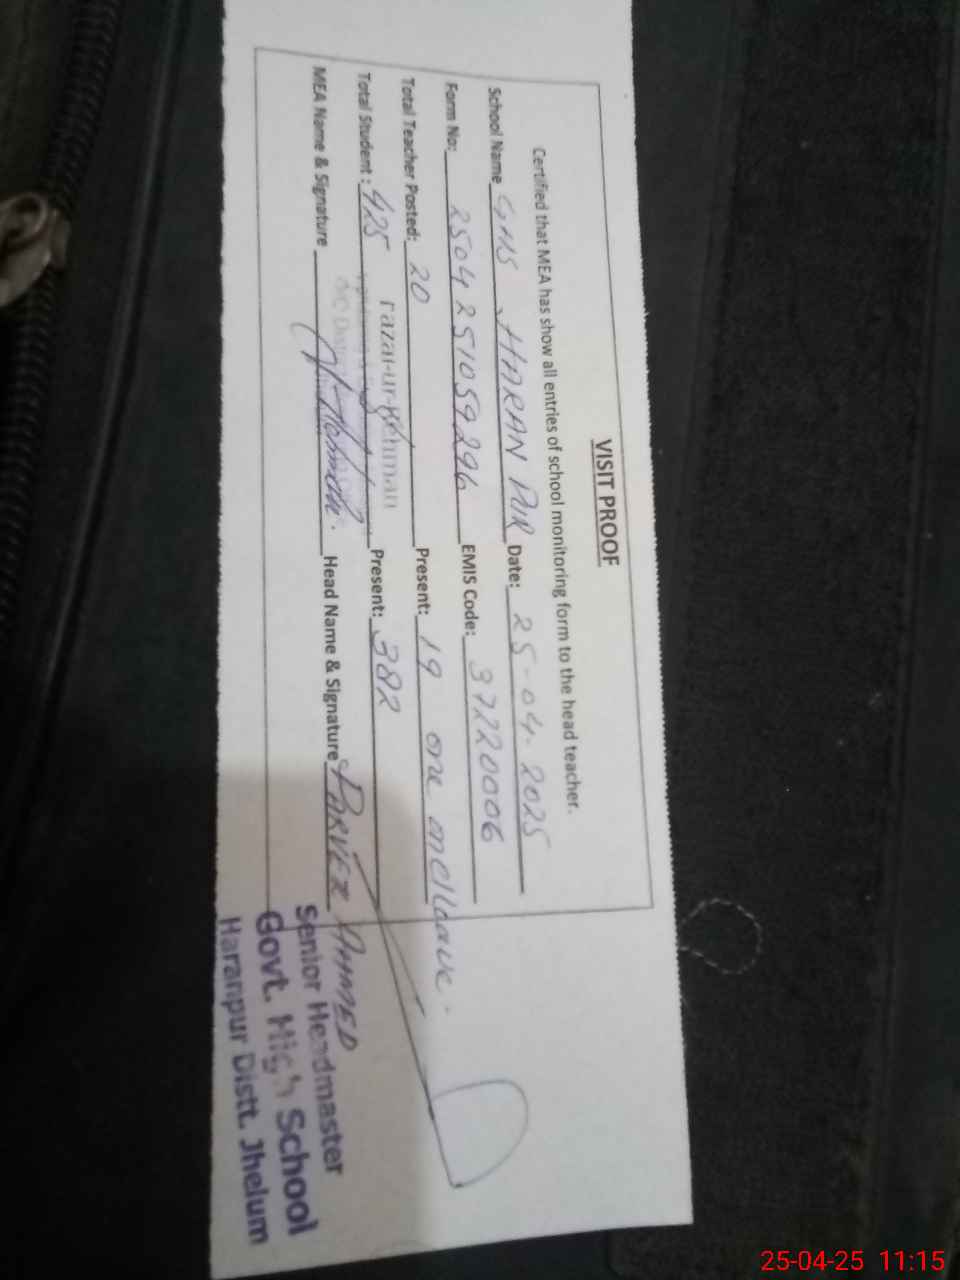 VISIT PROOF
Certified that MEA has show all entries of school monitoring form to the head teacher.
School Name GHS HARAN PUR Date: 25-04-2025
Form No: 2504251059296 EMIS Code: 37220006
Total Teacher Posted: 20 Present: 19 one onleave.
Total Student: 425 Present: 382
MEA Name & Signature Head Name & Signature PARVEZ AHMED
Senior Headmaster
Govt. High School
Haranpur Distt. Jhelum
25-04-25 11:15